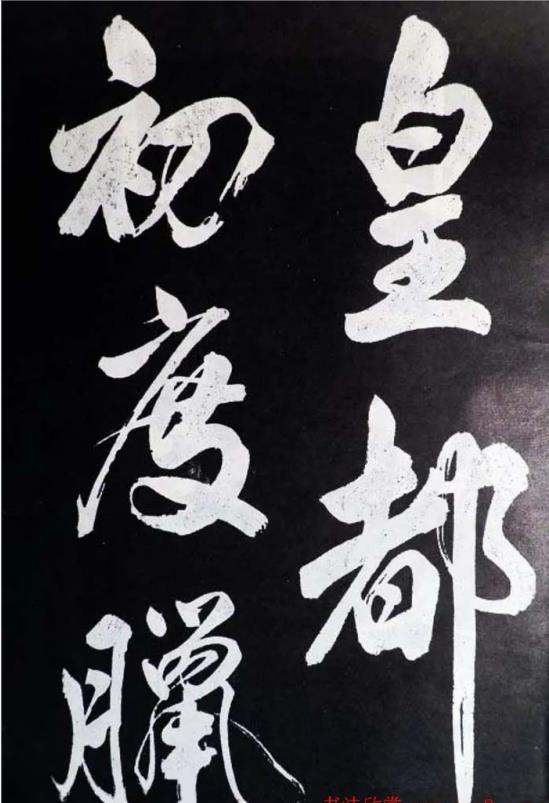 皇都
初度臘
书法欣赏